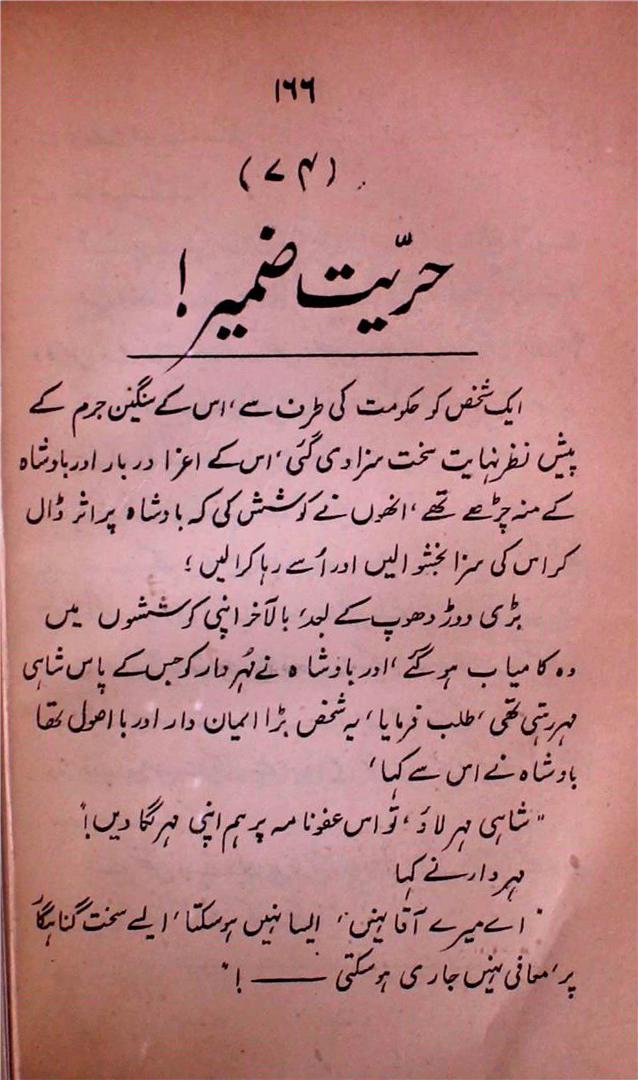 ۱۶۶
(۷۴)
حریّت ضمیر!
ایک شخص کو حکومت کی طرف سے، اس کے سنگین جرم کے
پیش نظر نہایت سخت سزا دی گئی، اس کے اعزا دربار اور بادشاہ
کے منہ چڑھے تھے، انھوں نے کوشش کی کہ بادشاہ پر اثر ڈال
کر اس کی سزا بخشوا لیں اور اُسے رہا کرا لیں؛
بڑی دوڑ دھوپ کے بعد، بالآخر اپنی کوششوں میں
وہ کامیاب ہو گئے، اور بادشاہ نے مُہردار کو جس کے پاس شاہی
مہر رہتی تھی، طلب فرمایا، یہ شخص بڑا ایمان دار اور با اصول تھا
بادشاہ نے اس سے کہا،
"شاہی مہر لاؤ، تو اس عفو نامہ پر ہم اپنی مہر لگا دیں!"
مہردار نے کہا
"اے میرے آقا نہیں، ایسا نہیں ہو سکتا، ایسے سخت گناہگار
پر، معافی نہیں جاری ہو سکتی ——— !"